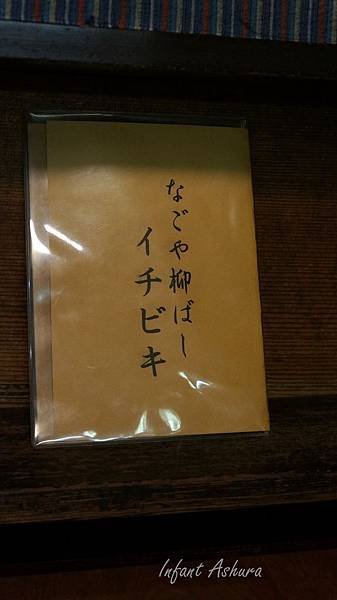 なごや柳ばし
イチビキ
Infant Ashura